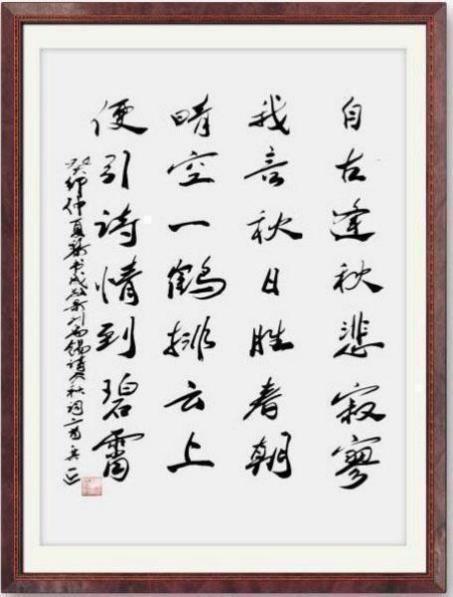 自古逢秋悲寂寥
我言秋日胜春朝
晴空一鹤排云上
便引詩情到碧霄
癸卯仲夏 刘禹锡 秋词一首